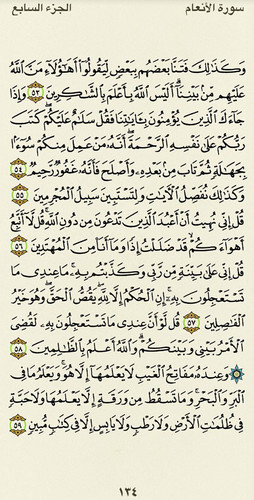 سورة الأنعام
الجزء السابع
وَكَذَٰلِكَ فَتَنَّا بَعْضَهُم بِبَعْضٍ لِّيَقُولُوٓا۟ أَهَٰٓؤُلَآءِ مَنَّ ٱللَّهُ
عَلَيْهِم مِّنۢ بَيْنِنَآ ۗ أَلَيْسَ ٱللَّهُ بِأَعْلَمَ بِٱلشَّٰكِرِينَ ٥٣ وَإِذَا
جَآءَكَ ٱلَّذِينَ يُؤْمِنُونَ بِـَٔايَٰتِنَا فَقُلْ سَلَٰمٌ عَلَيْكُمْ ۖ كَتَبَ
رَبُّكُمْ عَلَىٰ نَفْسِهِ ٱلرَّحْمَةَ ۖ أَنَّهُۥ مَنْ عَمِلَ مِنكُمْ سُوٓءًۢا
بِجَهَٰلَةٍ ثُمَّ تَابَ مِنۢ بَعْدِهِۦ وَأَصْلَحَ فَأَنَّهُۥ غَفُورٌ رَّحِيمٌ ٥٤
وَكَذَٰلِكَ نُفَصِّلُ ٱلْءَايَٰتِ وَلِتَسْتَبِينَ سَبِيلُ ٱلْمُجْرِمِينَ ٥٥
قُلْ إِنِّى نُهِيتُ أَنْ أَعْبُدَ ٱلَّذِينَ تَدْعُونَ مِن دُونِ ٱللَّهِ ۚ قُل لَّآ أَتَّبِعُ
أَهْوَآءَكُمْ ۙ قَدْ ضَلَلْتُ إِذًا وَمَآ أَنَا۠ مِنَ ٱلْمُهْتَدِينَ ٥٦
قُلْ إِنِّى عَلَىٰ بَيِّنَةٍ مِّن رَّبِّى وَكَذَّبْتُم بِهِۦ ۚ مَا عِندِى مَا
تَسْتَعْجِلُونَ بِهِۦٓ ۚ إِنِ ٱلْحُكْمُ إِلَّا لِلَّهِ ۖ يَقُصُّ ٱلْحَقَّ ۖ وَهُوَ خَيْرُ
ٱلْفَٰصِلِينَ ٥٧ قُل لَّوْ أَنَّ عِندِى مَا تَسْتَعْجِلُونَ بِهِۦ لَقُضِىَ
ٱلْأَمْرُ بَيْنِى وَبَيْنَكُمْ ۗ وَٱللَّهُ أَعْلَمُ بِٱلظَّٰلِمِينَ ٥٨
۞ وَعِندَهُۥ مَفَاتِحُ ٱلْغَيْبِ لَا يَعْلَمُهَآ إِلَّا هُوَ ۚ وَيَعْلَمُ مَا فِى
ٱلْبَرِّ وَٱلْبَحْرِ ۚ وَمَا تَسْقُطُ مِن وَرَقَةٍ إِلَّا يَعْلَمُهَا وَلَا حَبَّةٍ
فِى ظُلُمَٰتِ ٱلْأَرْضِ وَلَا رَطْبٍ وَلَا يَابِسٍ إِلَّا فِى كِتَٰبٍ مُّبِينٍ ٥٩
١٣٤